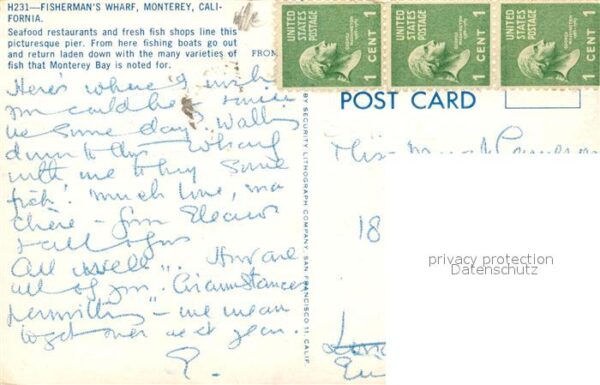 H231—FISHERMAN'S WHARF, MONTEREY, CALI-
FORNIA.
Seafood restaurants and fresh fish shops line this
picturesque pier. From here fishing boats go out
and return laden with the many varieties of
fish that Monterey Bay is noted for.
FROM
UNITED STATES POSTAGE
1 CENT 1
UNITED STATES POSTAGE
1 CENT 1
UNITED STATES POSTAGE
1 CENT 1
POST CARD
BY SECURITY LITHOGRAPH COMPANY, SAN FRANCISCO 11, CALIF.
Here's where I wish
you could be
us some day. Walk
down to this wharf
with me to buy some
fish! Much love, ma
chère — from Eleanor
& all of us
All well
all of you. "Circumstances
permitting" — we mean
to get over next year.
E.
Miss
18
privacy protection
Datenschutz